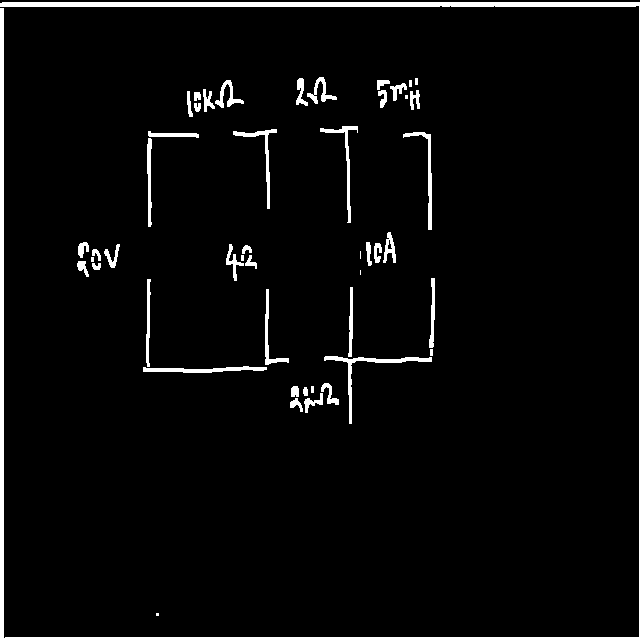 10kΩ 2Ω 5mH
20V 4Ω 10A